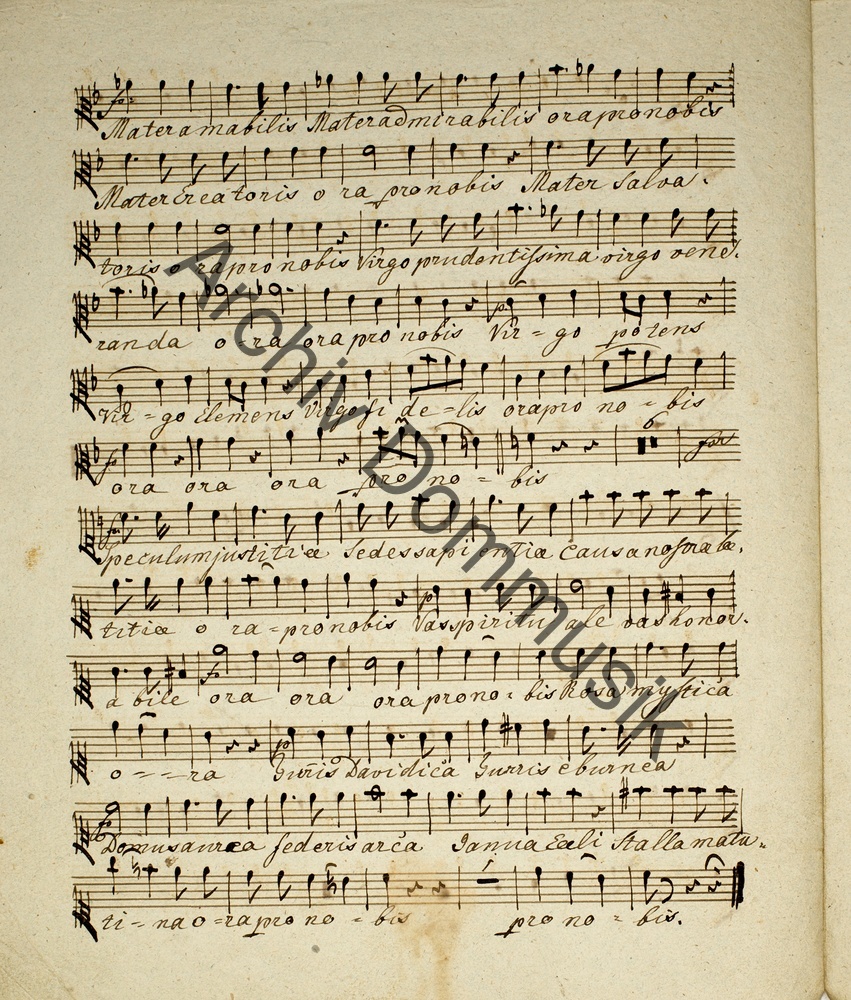 fo:
Mater amabilis Mater admirabilis ora pro nobis
Mater Creatoris o ra pro nobis Mater Salva.
toris o rapro nobis Virgo prudentissima virgo vene.
randa o=ra ora pro nobis Vir=go potens
p:
Vir=go Clemens Virgo fi de=lis orapro no=bis
6
for
ora ora ora pro no=bis
Speculum justitiæ Sedes sapi entiæ Causa nostræ læ.
titiæ o ra=pro nobis Vas spiritu ale vas honor.
p
a bile ora ora ora pro no=bis Rosa mystica
f:
o=--ra Turris Davidica Turris eburnea
p
Domus aurea federis arca Ianua Cæli Stalla matu=
ti=na o=ra pro no=bis pro no=bis.
1
Archiv Dommusik